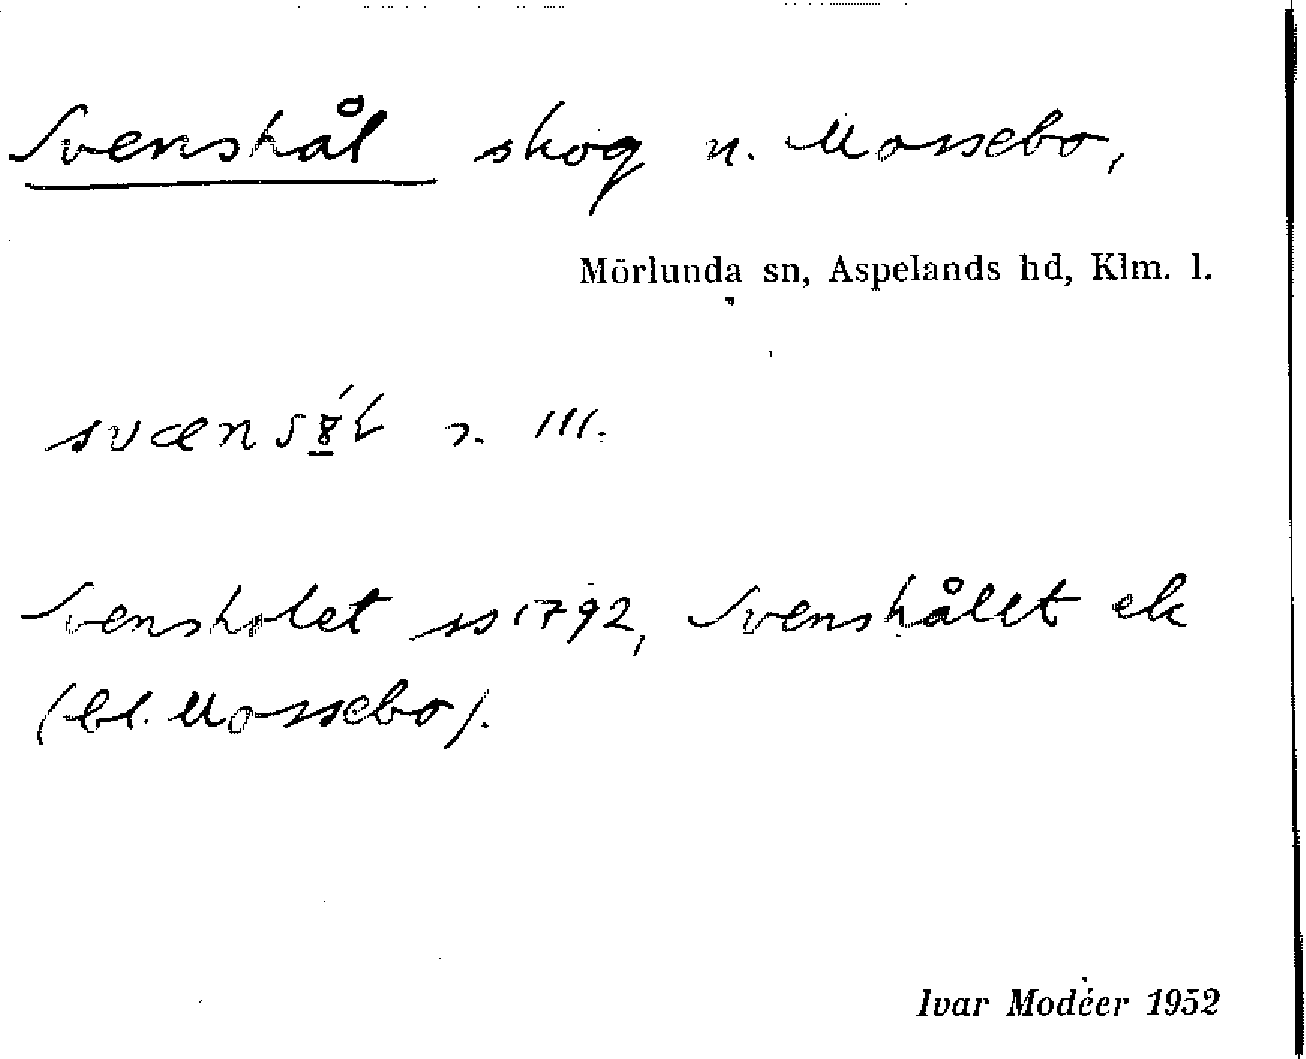 Svenshål skog n. Mossebo,
Mörlunda sn, Aspelands hd, Klm. l.
n. III.
Svensholet ss 1792, Svenshålet ek
(bl. Mossebo).
Ivar Modéer 1952